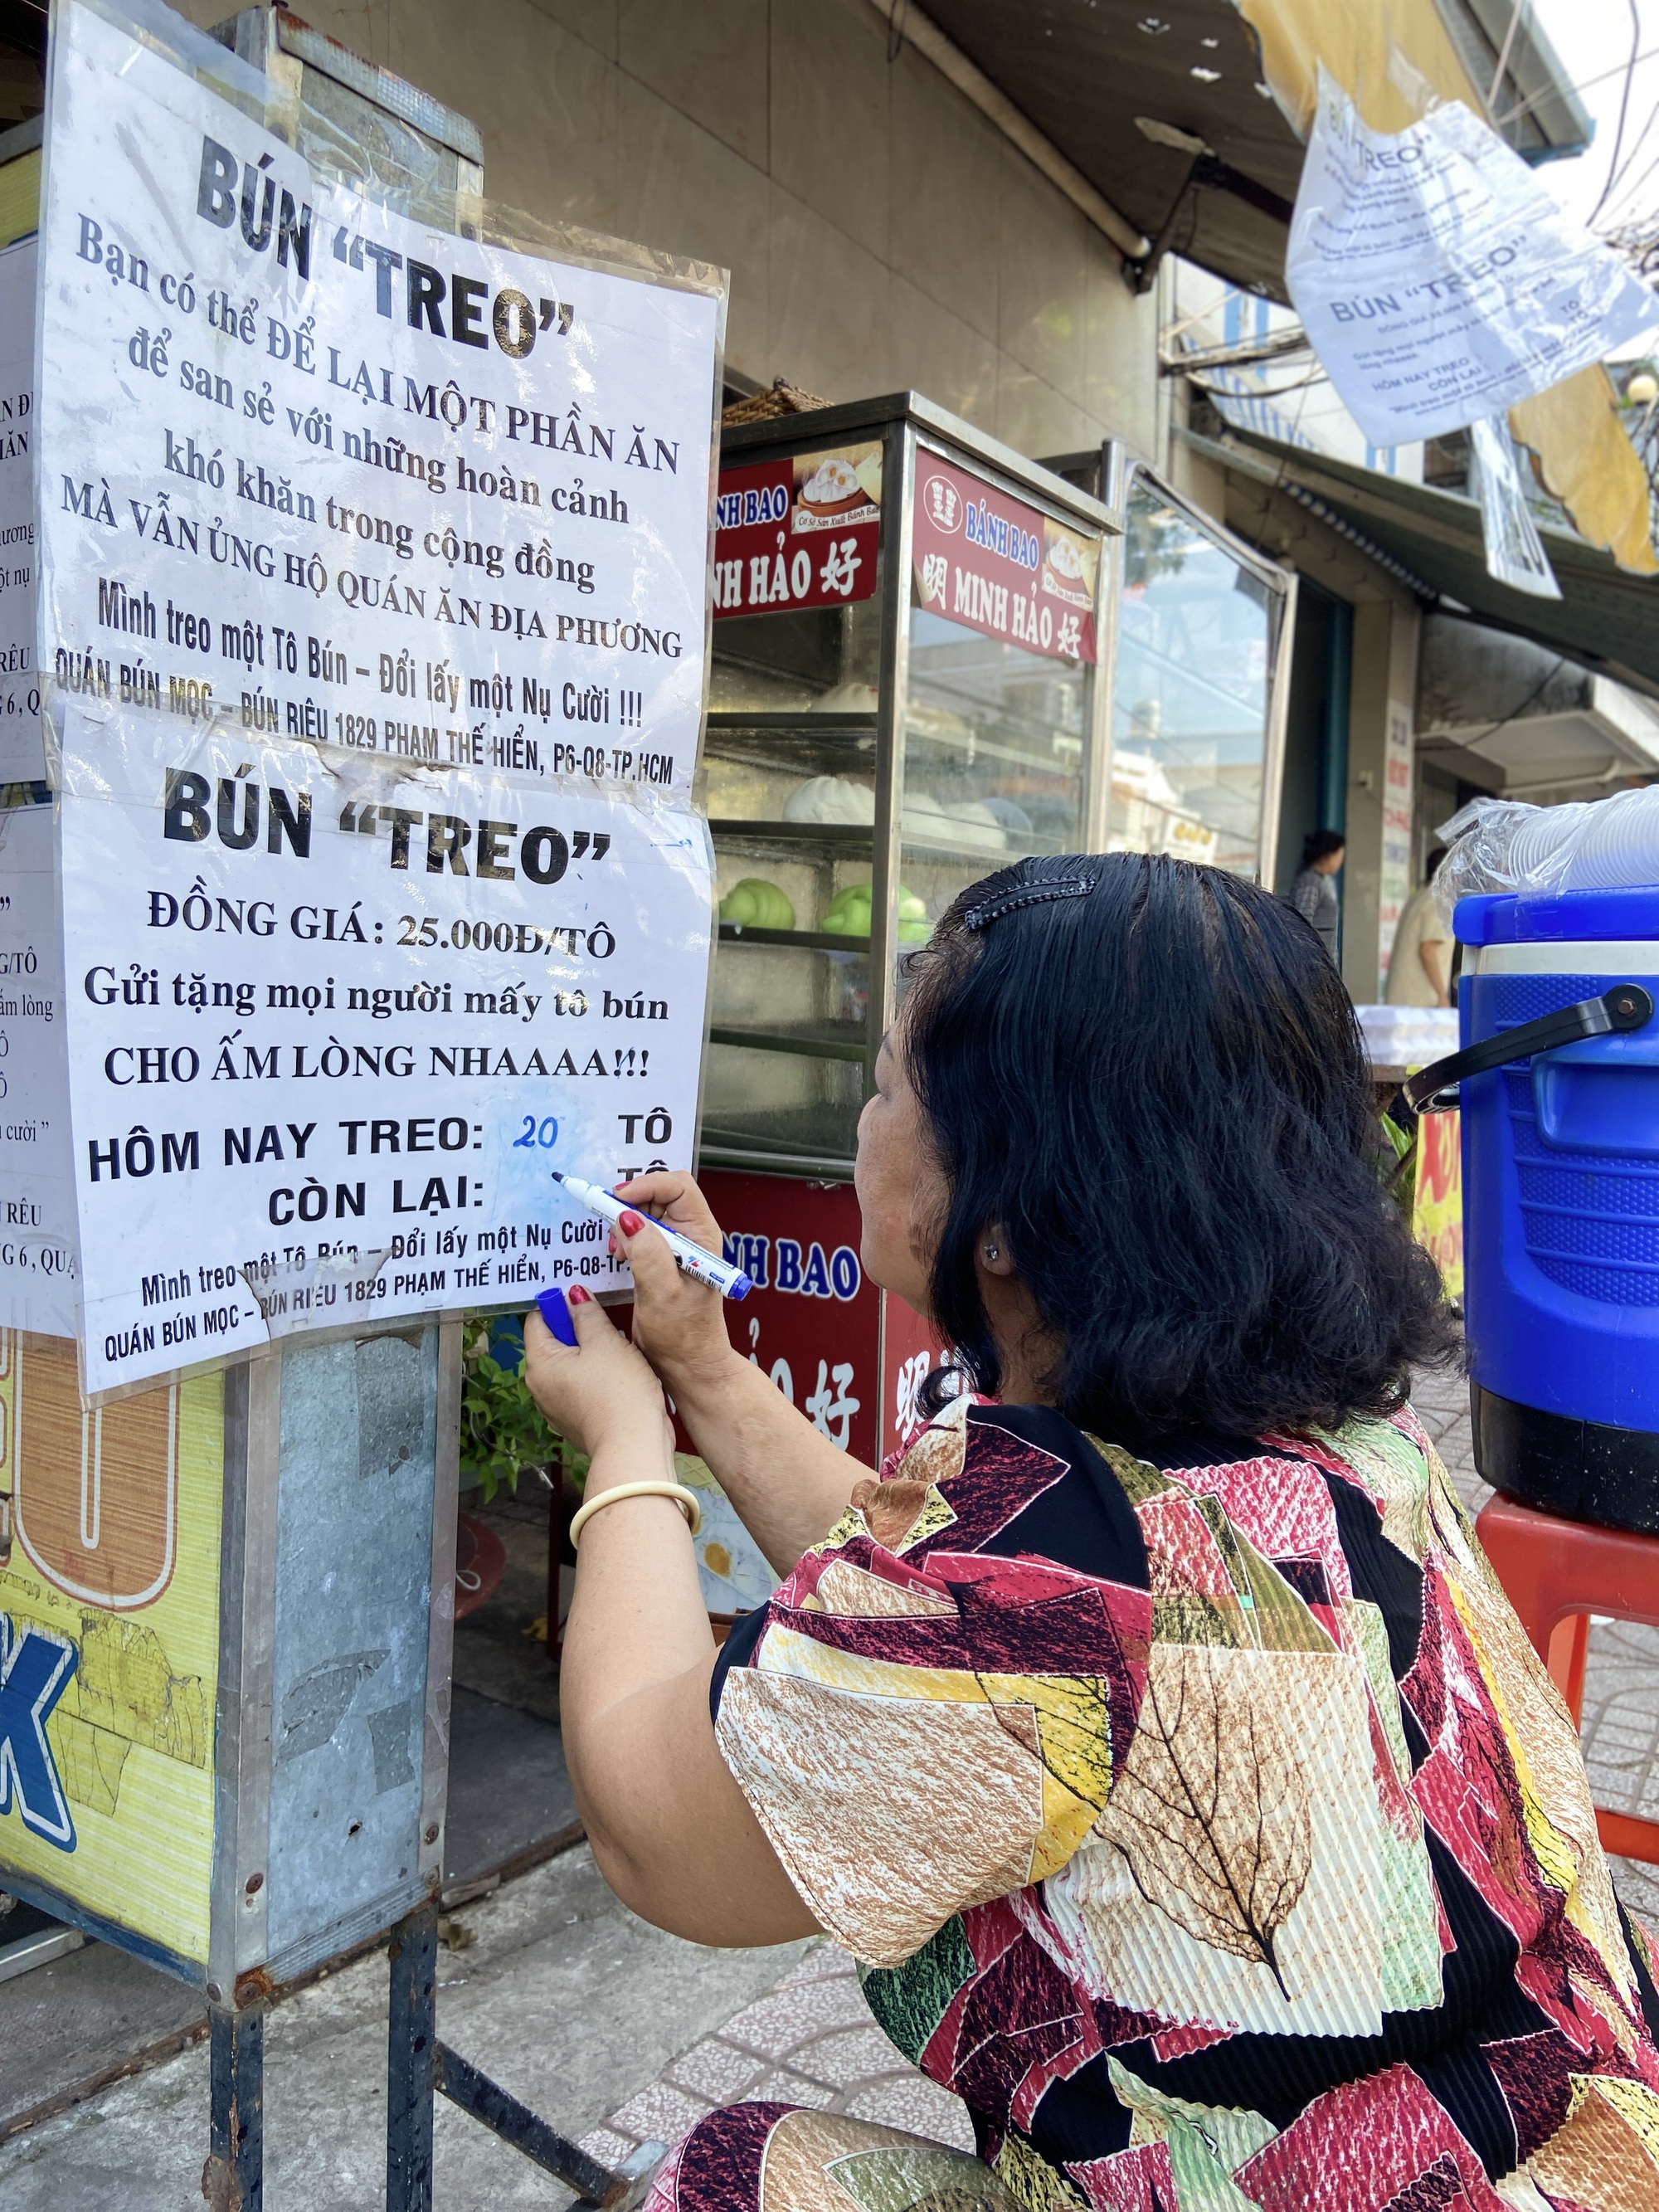 BÚN “TREO”
Bạn có thể ĐỂ LẠI MỘT PHẦN ĂN
để san sẻ với những hoàn cảnh
khó khăn trong cộng đồng
MÀ VẪN ỦNG HỘ QUÁN ĂN ĐỊA PHƯƠNG
Mình treo một Tô Bún – Đổi lấy một Nụ Cười !!!
QUÁN BÚN MỌC – BÚN RIÊU 1829 PHẠM THẾ HIỂN, P6-Q8-TP.HCM
BÚN “TREO”
ĐỒNG GIÁ: 25.000Đ/TÔ
Gửi tặng mọi người mấy tô bún
CHO ẤM LÒNG NHAAAA!!!
HÔM NAY TREO: 20 TÔ
CÒN LẠI: TÔ
Mình treo một Tô Bún – Đổi lấy một Nụ Cười
QUÁN BÚN MỌC – BÚN RIÊU 1829 PHẠM THẾ HIỂN, P6-Q8-TP.
NH BAO
Cơ Sở Sản Xuất Bánh Bao
NH HẢO 好
BÁNH BAO
明 MINH HẢO 好
NH BAO
ẢO 好
明
TREO”
BÚN “TREO”
HÔM NAY TREO
CÒN LẠI
G/TÔ
ấm lòng
cười ”
RÊU